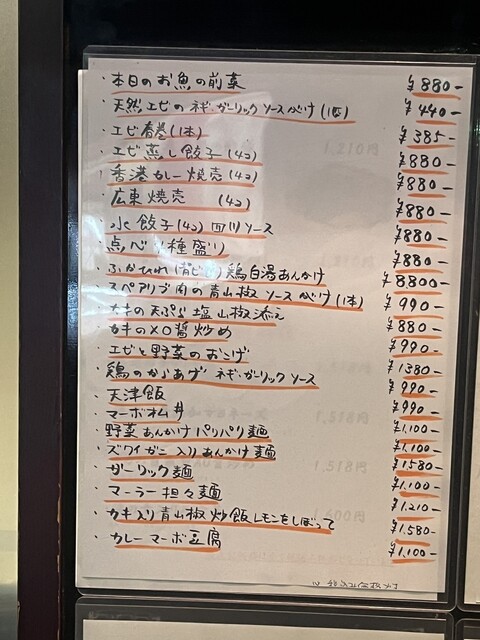 ・本日のお魚の前菜 ¥880-
・天然エビのネギ・ガーリックソースがけ(1匹) ¥440-
・エビ春巻(1本) ¥385-
・エビ蒸し餃子(4コ) ¥880-
・香港カレー焼売(4コ) ¥880-
・広東焼売 (4コ) ¥880-
・水餃子(4コ)四川ソース ¥880-
・種盛り) ¥880-
・ふかひれ(背びれ)鶏白湯あんかけ ¥8800-
・スペアリブ肉の青山椒ソースがけ(1本) ¥990-
・カキの天ぷら塩山椒添え ¥880-
・カキのXO醤炒め ¥990-
・エビと野菜のおこげ ¥1380-
・鶏のからあげネギ・ガーリックソース ¥990-
・天津飯 ¥990-
・マーボ丼 ¥1,100-
・野菜あんかけパリパリ麺 ¥1,100-
・ズワイガニ入りあんかけ麺 ¥1,580-
・ガーリック麺 ¥1,100-
・マーラー担々麺 ¥1,210-
・カキ入り青山椒炒飯レモンをしぼって ¥1,580-
・カレーマーボ豆腐 ¥1,100-